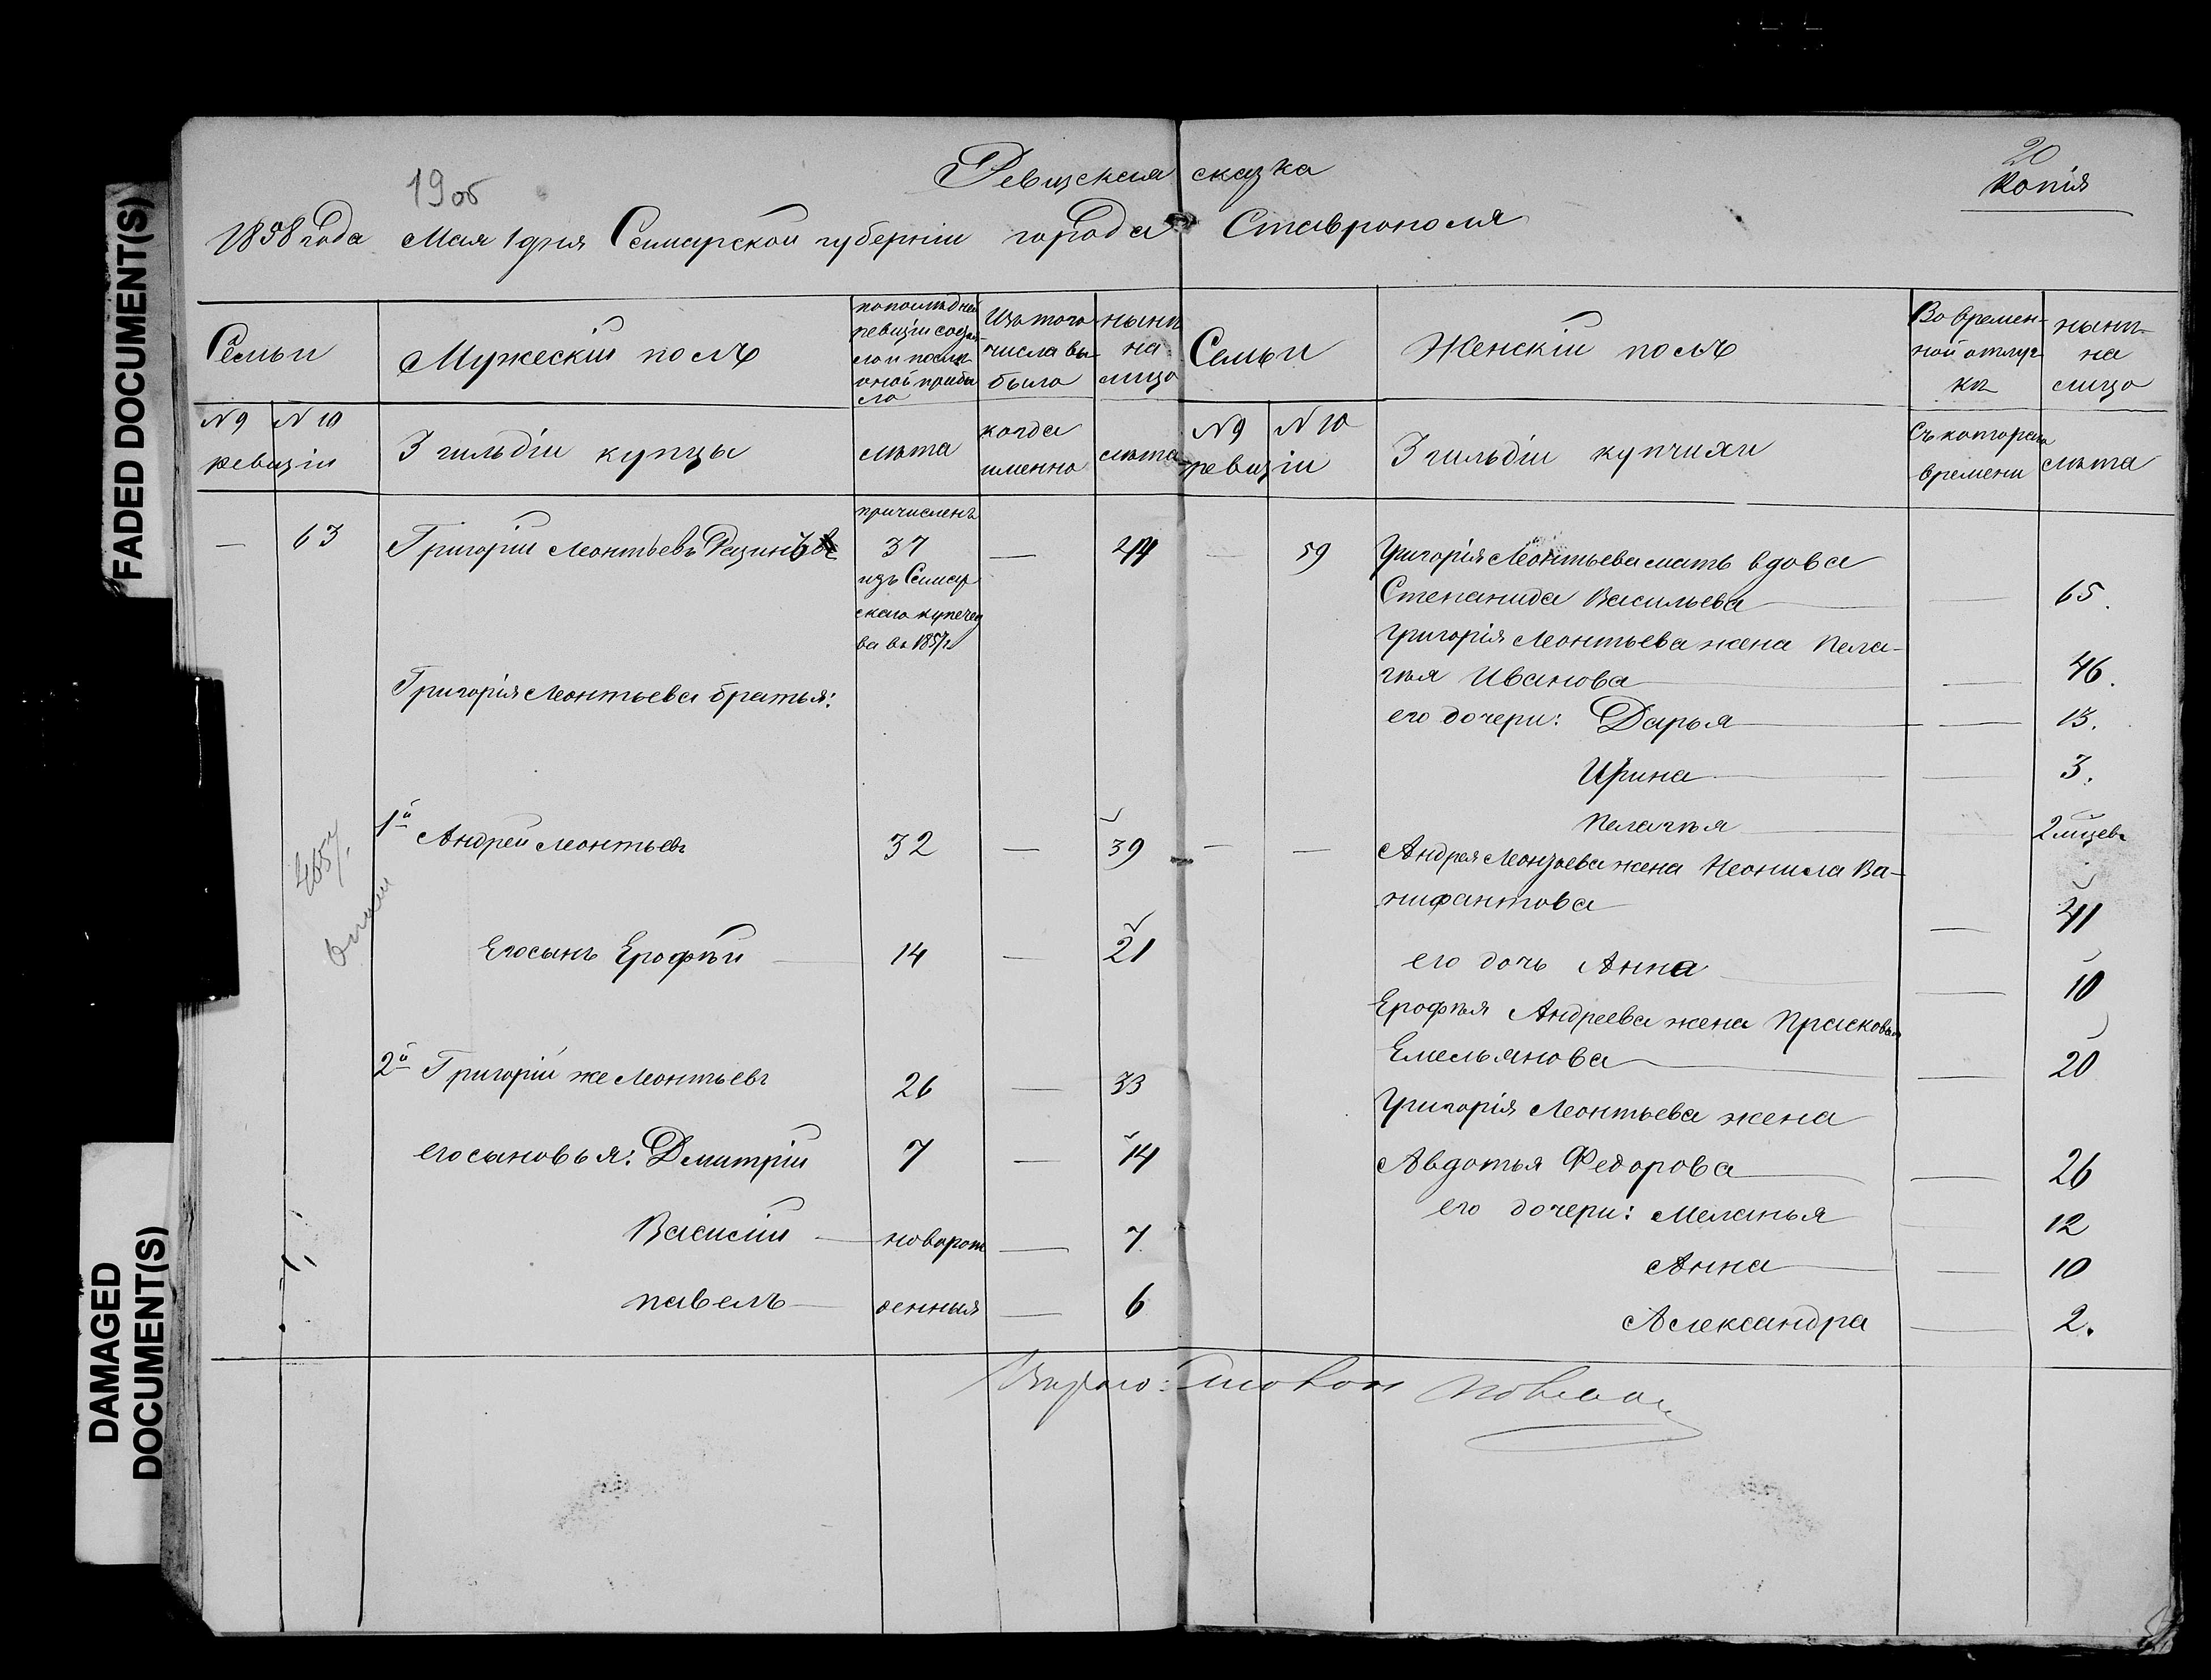 FADED DOCUMENT(S)
DAMAGED DOCUMENT(S)
19об
20
Копія
Ревизская сказка
1858 года Мая 1 дня Самарской губерніи города Ставрополя
Семьи
Мужескій полъ
по последней ревизіи состояло и после оной прибыло
Изъ того числа выбыло
ныне на лицо
№ 9 № 10
ревизіи
3 гильдіи купцы
лѣта
когда именно
лѣта
63 Григорій Леонтьевъ — 44
причисленъ
37
изъ Самар
скаго купечес
ва въ 1857 г
Григорія Леонтьева братья:
1й Андрей Леонтьевъ 32 — 39
Его сынъ Ерофѣй — 14 — 21
2й Григорій же Леонтьевъ 26 — 33
его сыновья: Дмитрій 7 — 14
Василій — новорож — 7
Павелъ — денныя — 6
Семьи
Женскій полъ
Во времен-
ной отлуч-
кѣ
нынѣ
на
лицо
№ 9 № 10
ревизіи
3 гильдіи купчихи
Съ котораго
времени
лѣта
— 59 Григорія Леонтьева мать вдова
Степанида Васильева — — 65.
Григорія Леонтьева жена Пела-
гѣя Иванова — — 46.
его дочери: Дарья — — 13.
Ирина — — 3.
Пелагѣя — — 2 мѣсяцев
— — Андрея Леонтьева жена Неонила Ва-
нифантова — 41
его дочь Анна — — 10
Ерофѣя Андреева жена Прасковья
Емельянова — — 20
Григорія Леонтьева жена
Авдотья Федорова — — 26
его дочери: Меланья — 12
Анна — — 10
Александра — 2.